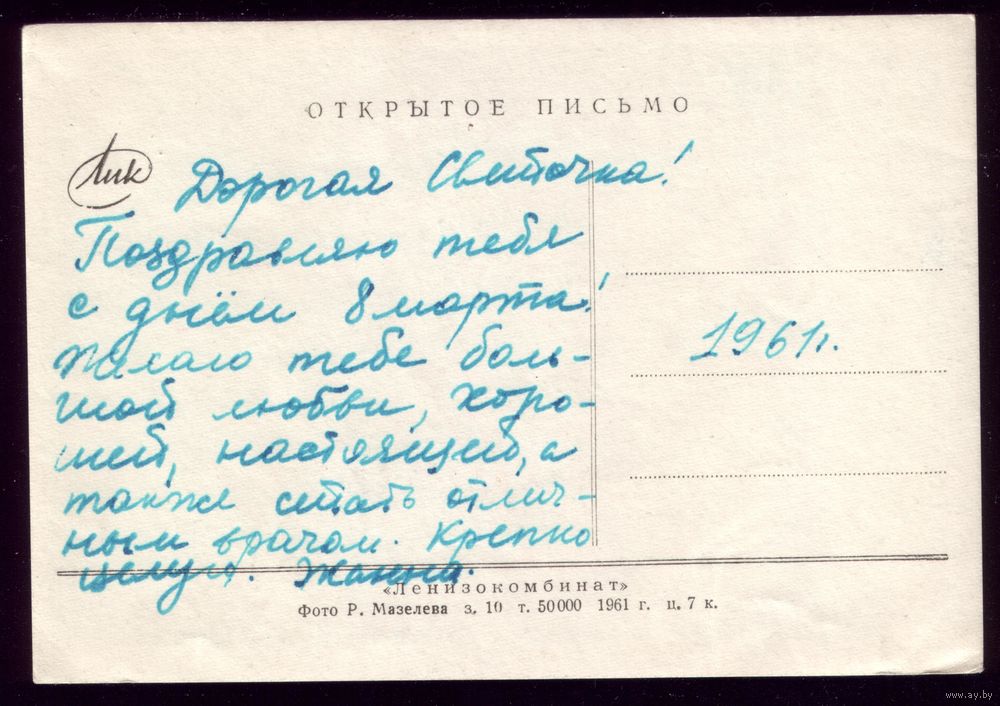 ОТКРЫТОЕ ПИСЬМО
Лик
Дорогая Светочка!
Поздравляю тебя
с днём 8 марта!
Желаю тебе боль-
шой любви, хоро-
шей, настоящей, а
также стать отлич-
ным врачом. Крепко
целую. Жанна.
1961г.
«Ленизокомбинат»
Фото Р. Мазелева з. 10 т. 50000 1961 г. ц. 7 к.
www.ay.by